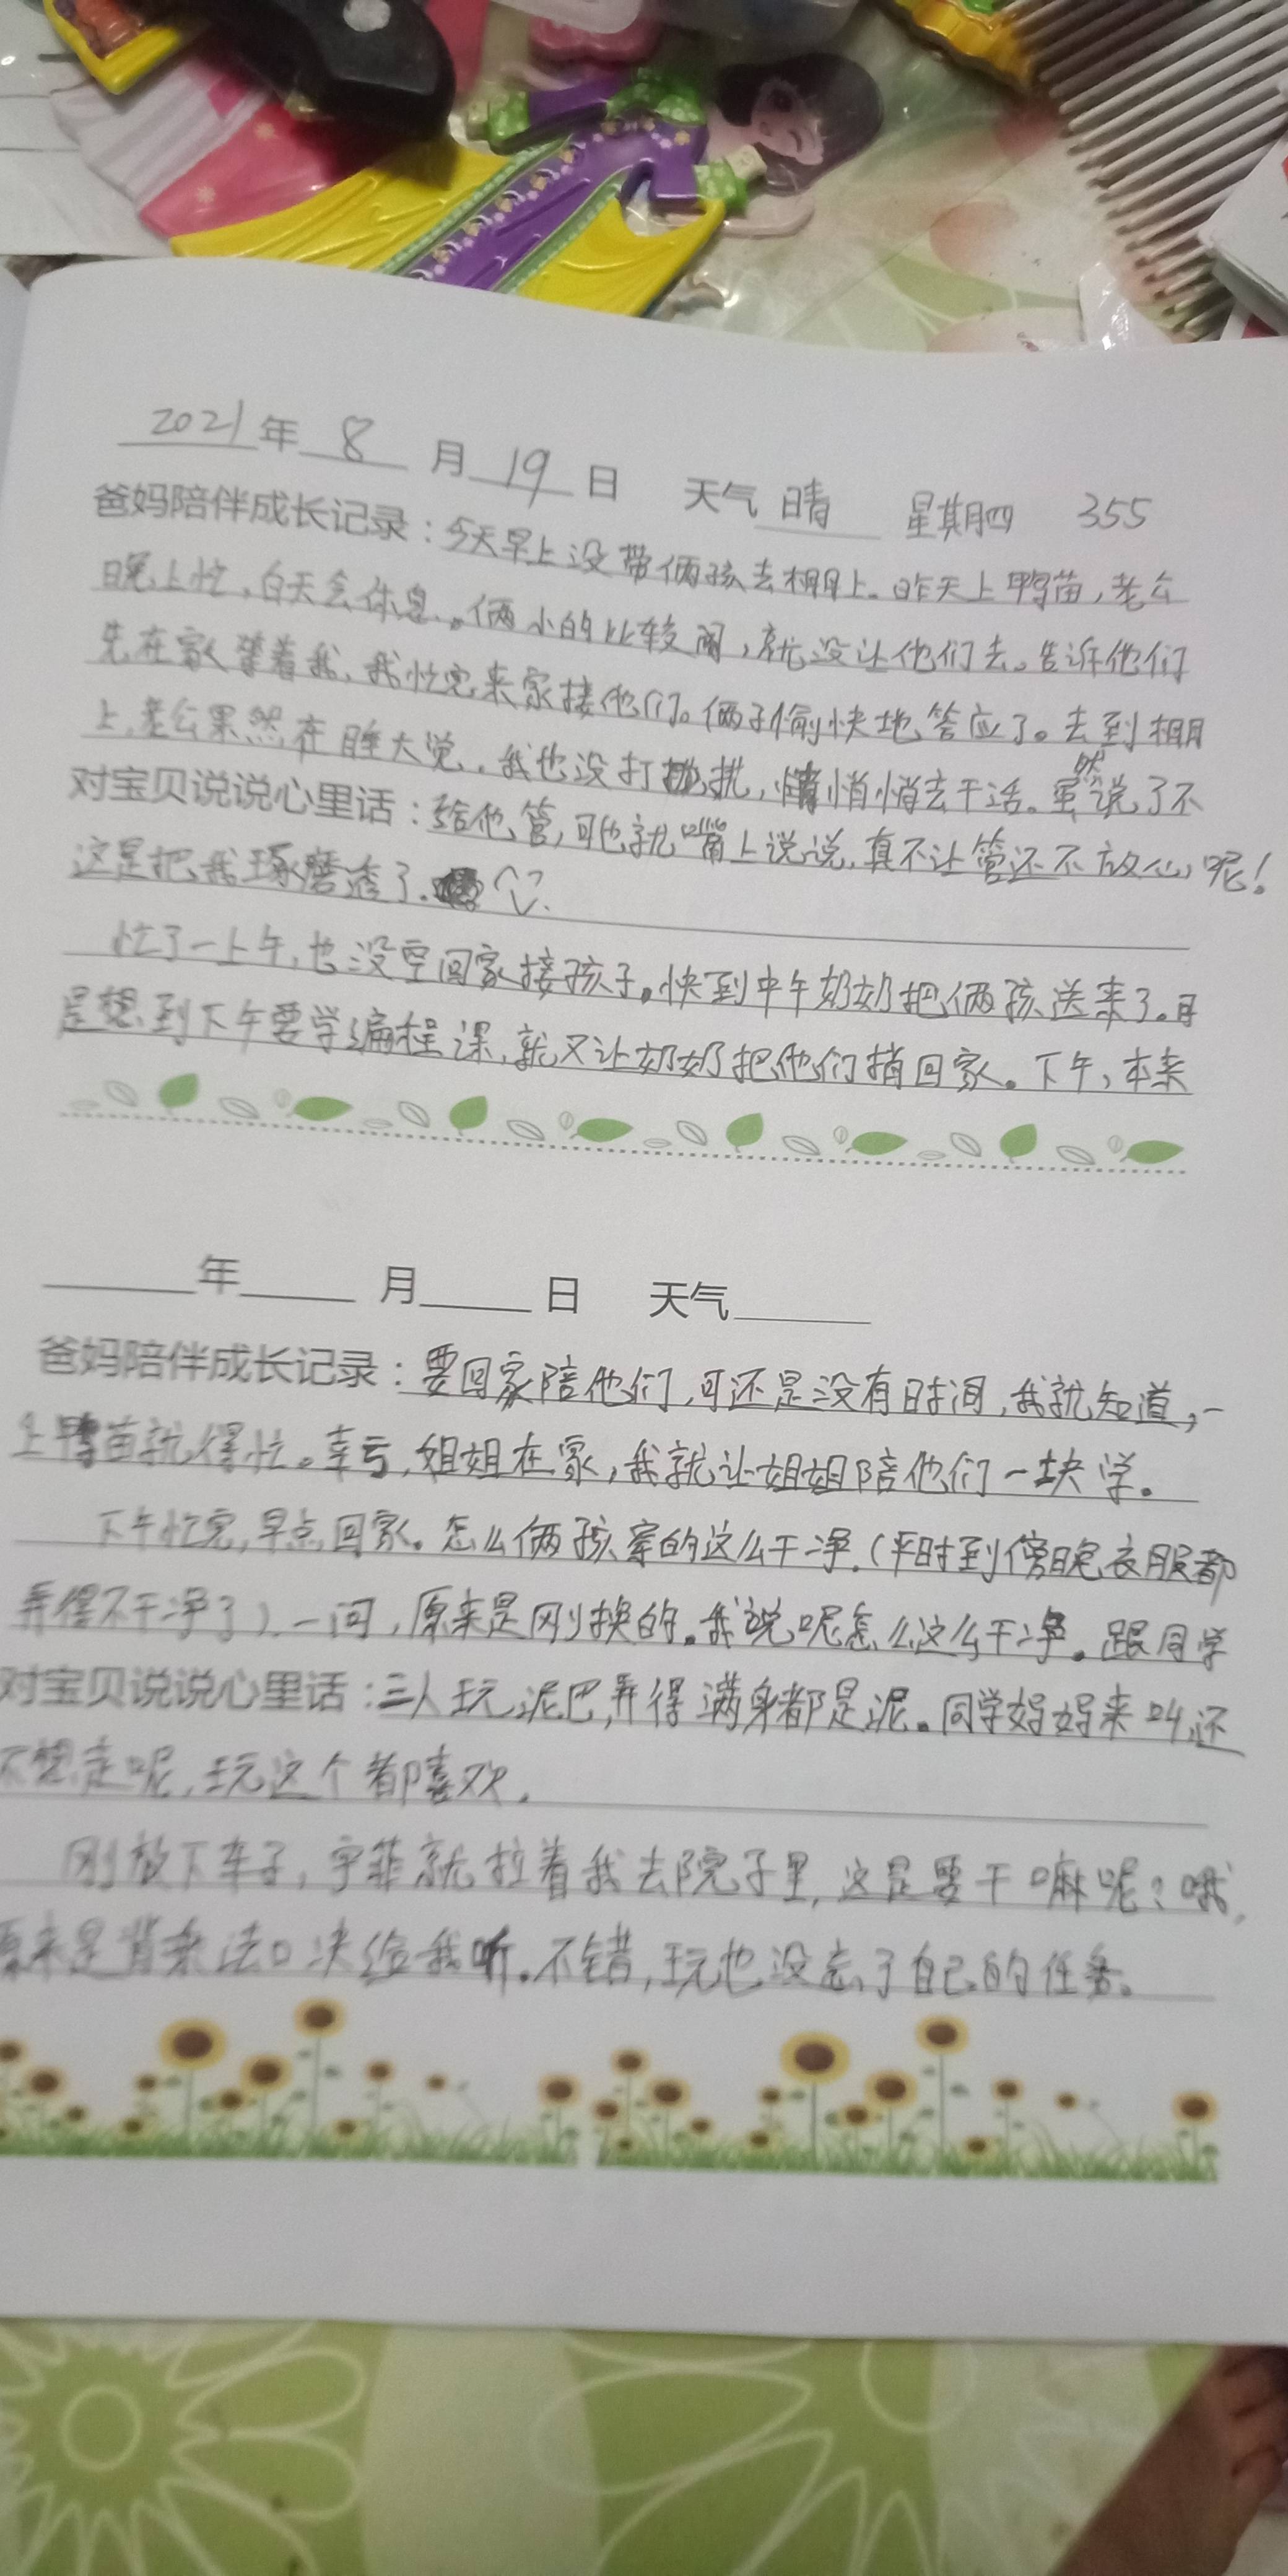 2021年8月19日 天气晴 星期四 355
爸妈陪伴成长记录：今天早上没带俩孩去棚上。昨天上鸭苗，老公
晚上忙，白天会休息。俩小的比较闹，就没让他们去。告诉他们
先在家等着我，我忙完来家接他们。俩孑愉快地答应了。去到棚
上，老公果然在睡大觉。我也没打扰，悄悄悄去干活。虽然说了不
对宝贝说说心里话：给他管，可他就嘴上说说，真不让管还不放心呢！
这是把我琢磨透了。
忙了一上午，也没空回家接孩子。快到中午奶奶把俩孩送来了。可
是想到下午要学编程课，就又让奶奶把他们捎回家。下午，本来
年 月 日 天气
爸妈陪伴成长记录：要回家陪他们，可还是没有时间，我就知道，一
上鸭苗就得忙。幸亏，姐姐在家，我就让姐姐陪他们一块学。
下午忙完，早点回家。怎么俩孩穿的这么干净.（平时到傍晚衣服都
弄得不干净了）.一问，原来是刚换的。我说呢怎么这么干净。跟同学
对宝贝说说心里话：三人玩泥巴，弄得满身都是泥。同学妈妈来叫，还
不想走呢，玩这个都喜欢。
刚放下车子，宇菲就拉着我去院子里，这是要干嘛呢？哦，
原来是背乘法口决给我听。不错，玩也没忘了自己的任务。